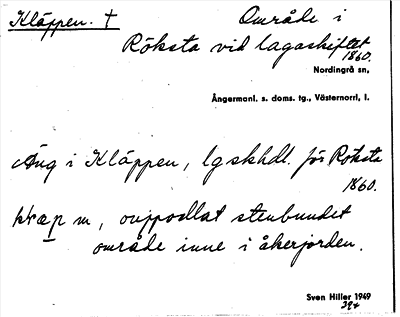 Kläppen. † Område i
Röksta vid lagaskiftet
1860.
Nordingrå sn,
Ångermanl. s. doms. tg., Västernorrl, l.
Äng i Kläppen, lgskhdl. för Röksta
1860.
m, ouppodlat stenbundet
område inne i åkerjorden.
Sven Hiller 1949